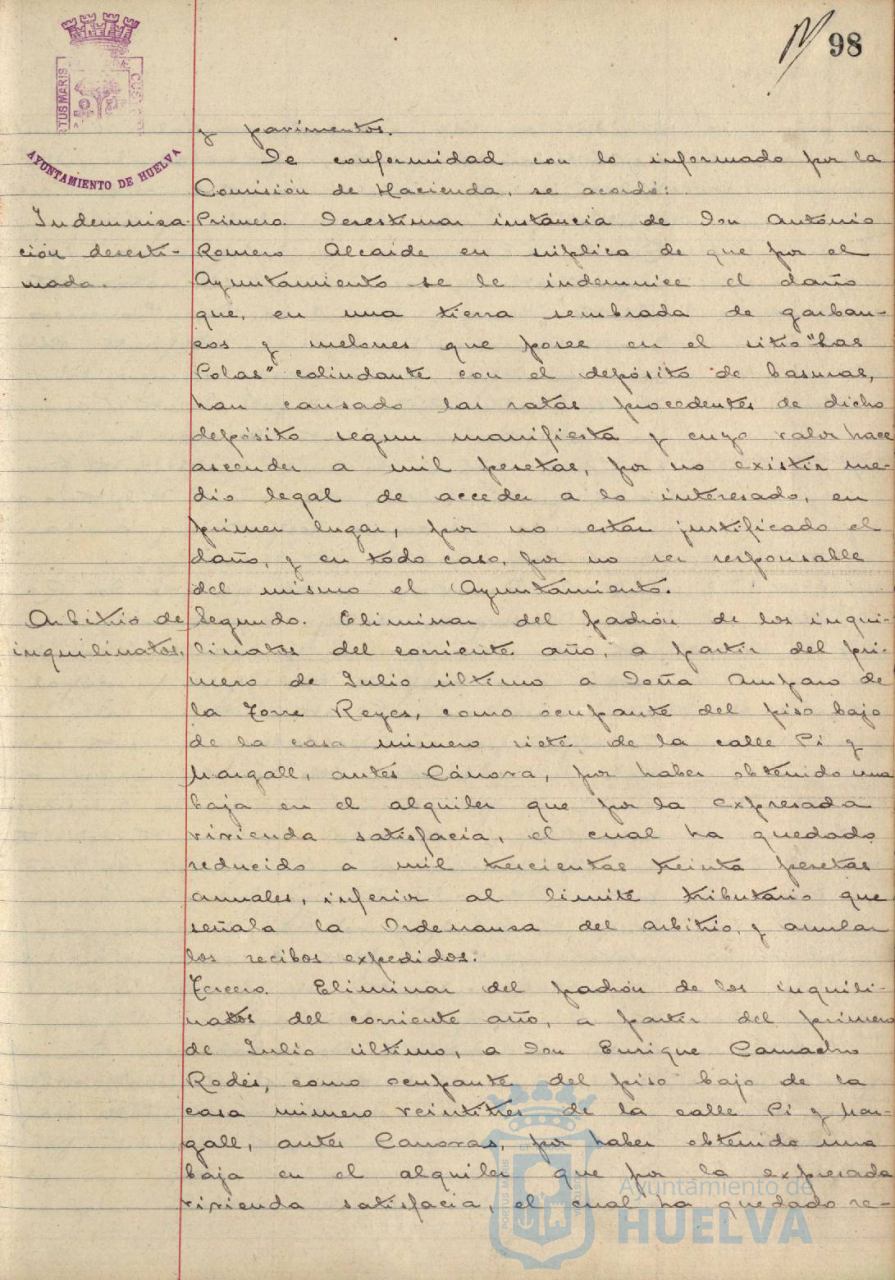 98
PORTUS MARIS CUSTODIA
AYUNTAMIENTO DE HUELVA
y pavimentos.
De conformidad con lo informado por la
Comisión de Hacienda, se acordó:
Indemnisa-
ción desesti-
mada.
Primero. Desestimar instancia de Don Antonio
Romero Alcaide en súplica de que por el
Ayuntamiento se le indemnice el daño
que, en una tierra sembrada de garban-
zos y melones que posee en el sitio "Las
Polas" colindante con el depósito de basuras,
han causado las ratas procedentes de dicho
depósito segun manifiesta y cuyo valor hace
ascender a mil pesetas, por no existir me-
dio legal de acceder a lo interesado, en
primer lugar, por no estar justificado el
daño, y en todo caso, por no ser responsable
del mismo el Ayuntamiento.
Arbitrio de
inquilinatos.
Segundo. Eliminar del padrón de los inqui-
linatos del corriente año, a partir del pri-
mero de Julio último a Doña Amparo de
la Torre Reyes, como ocupante del piso bajo
de la casa número siete de la calle Pi y
Margall, antes Cánova, por haber obtenido una
baja en el alquiler que por la expresada
vivienda satisfacia, el cual ha quedado
reducido a mil trescientas treinta pesetas
anuales, inferior al límite tributario que
señala la Ordenansa del arbitrio, y anular
los recibos expedidos.
Tercero. Eliminar del padrón de los inquili-
natos del corriente año, a partir del primero
de Julio último, a Don Enrique Camacho
Rodés, como ocupante del piso bajo de la
casa número veintitres de la calle Pi y Mar-
gall, antes Canovas, por haber obtenido una
baja en el alquiler que por la expresada
vivienda satisfacia, el cual ha quedado re-
Ayuntamiento de
HUELVA